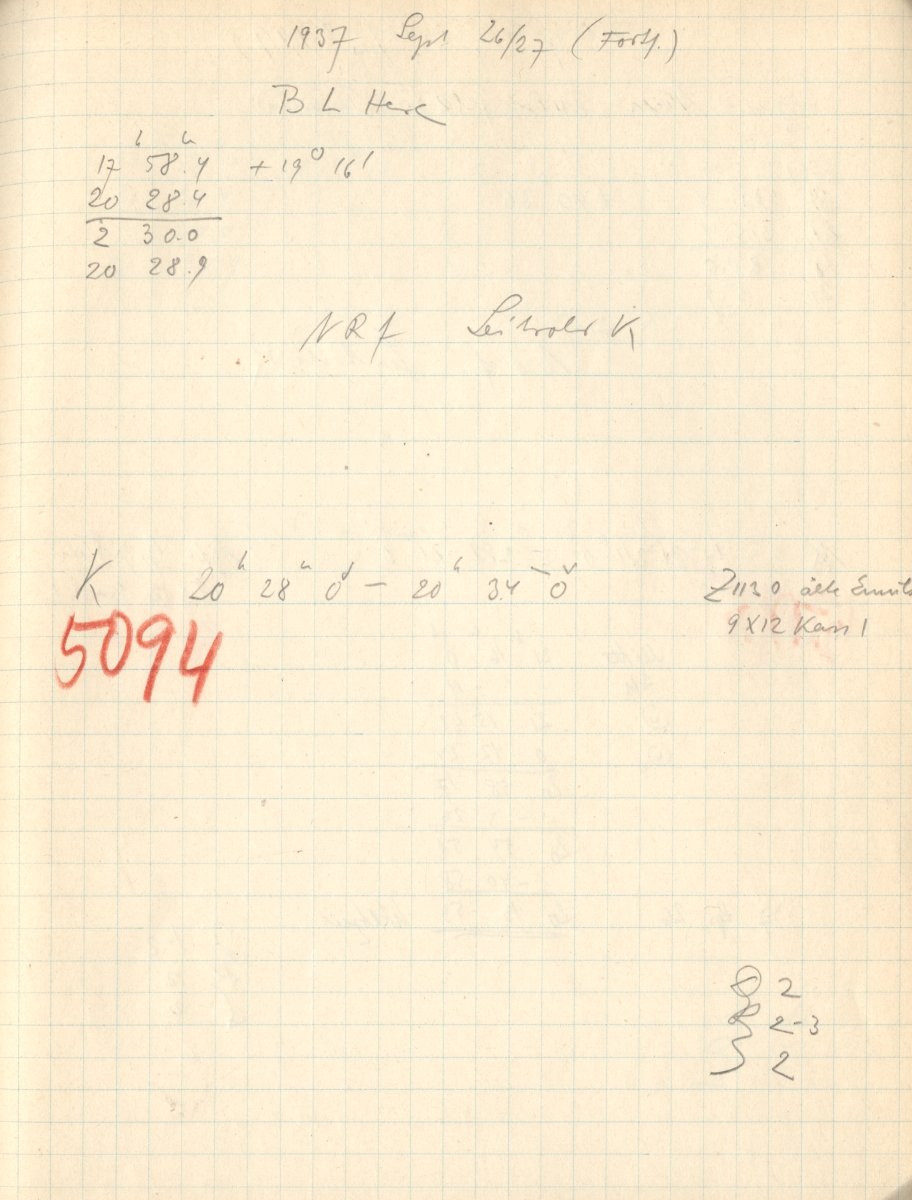 1937 Sept 26/27 (Forts.)
BL Herc
17ʰ 58ᵐ.4 + 19° 16'
20 28.4
2 30.0
20 28.9
NRf Leitrohr K
K 20ʰ 28ᵐ 0ˢ — 20ʰ 34ᵐ 0ˢ Z1130 alte Emuls
5094 9x12 Kass 1
2
2-3
2